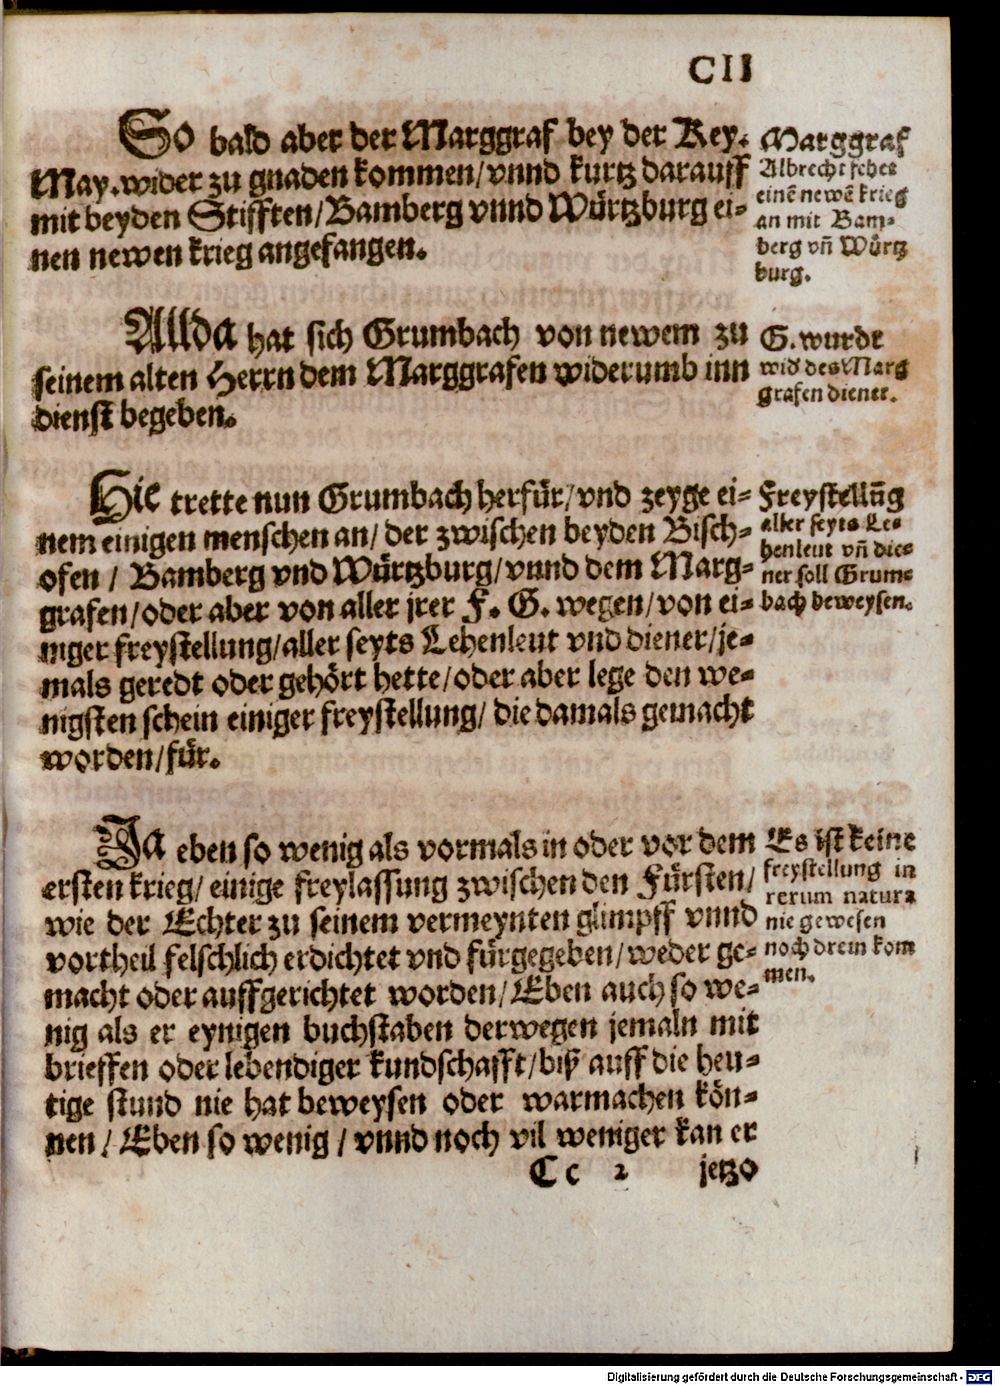 CII
So bald aber der Marggraf bey der Key.
May. wider zu gnaden kommen/ vnnd kurtz darauff
mit beyden Stifften/ Bamberg vnnd Würtzburg ei-
nen newen krieg angefangen.
Marggraf
Albrecht fehet
einē newē krieg
an mit Bam-
berg vn̄ Würtz
burg.
Allda hat sich Grumbach von newem zu
seinem alten Herrn dem Marggrafen widerumb inn
dienst begeben.
G. wurdt
wid des Marg
grafen diener.
Hie trette nun Grumbach herfür/ vnd zeyge ei-
nem einigen menschen an/ der zwischen beyden Bisch-
ofen / Bamberg vnd Würtzburg/ vnnd dem Marg-
grafen/ oder aber von aller jrer F. G. wegen/ von ei-
niger freystellung/ aller seyts Lehenleut vnd diener/ je-
mals geredt oder gehört hette/ oder aber lege den we-
nigsten schein einiger freystellung/ die damals gemacht
worden/ für.
Freystellūg
aller seyts Le-
henleut vn̄ die-
ner soll Grum-
bach beweysen.
Ja eben so wenig als vormals in oder vor dem
ersten krieg/ einige freylassung zwischen den Fürsten/
wie der Echter zu seinem vermeynten glimpff vnnd
vortheil felschlich erdichtet vnd fürgegeben/ weder ge-
macht oder auffgerichtet worden/ Eben auch so we-
nig als er eynigen buchstaben derwegen jemaln mit
brieffen oder lebendiger kundschafft/ biß auff die heu-
tige stund nie hat beweysen oder warmachen kön-
nen / Eben so wenig / vnnd noch vil weniger kan er
Es ist keine
freystellung in
rerum natura
nie gewesen
noch drein kom
men.
Cc 2 jetzo
Digitalisierung gefördert durch die Deutsche Forschungsgemeinschaft - DFG